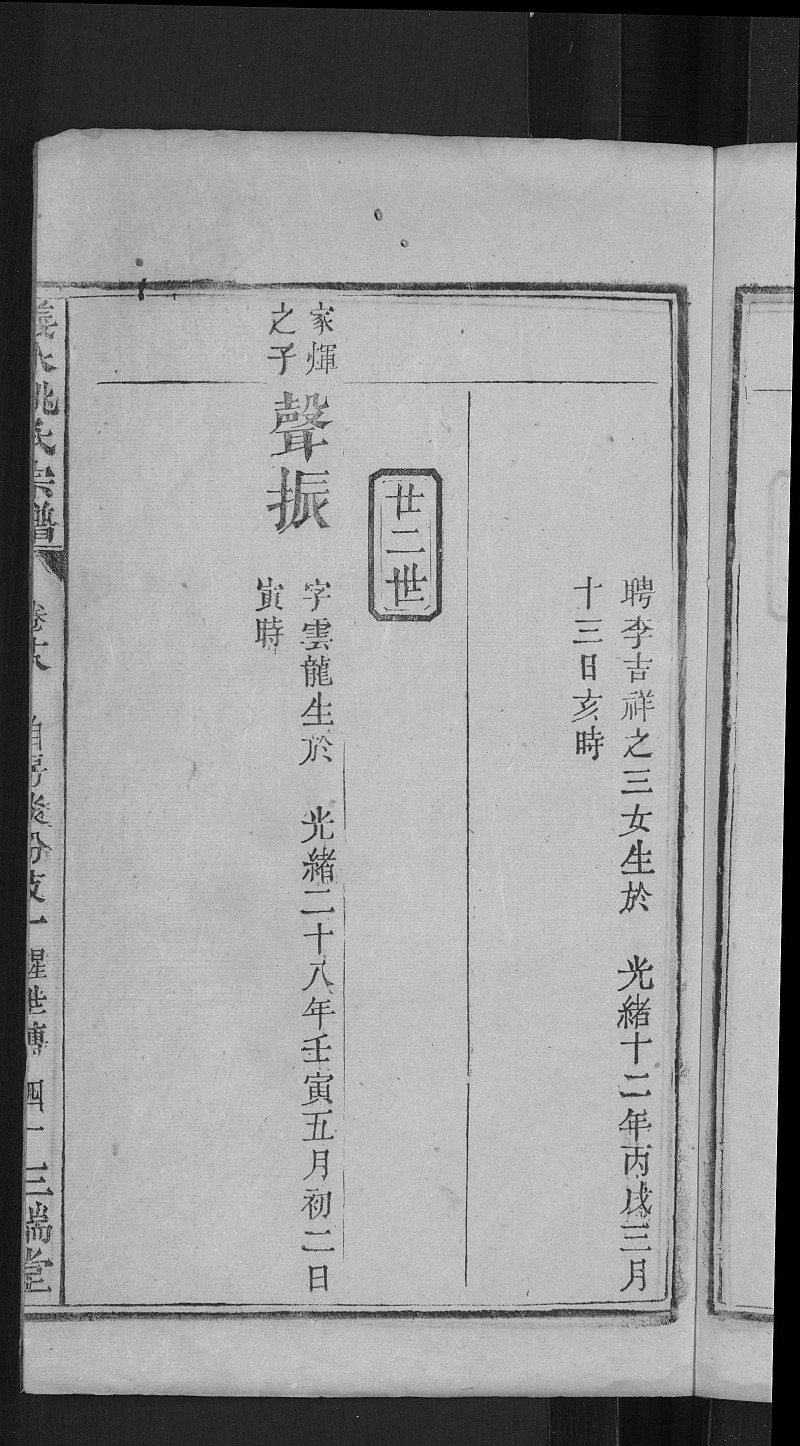 聘李吉祥之三女生於 光緒十二年丙戌三月
十三日亥時
廿二世
家煇
之子
聲振
字雲龍生於 光緒二十八年壬寅五月初二日
寅時
姚氏宗譜 卷 分支 世傳 四十 三瑞堂